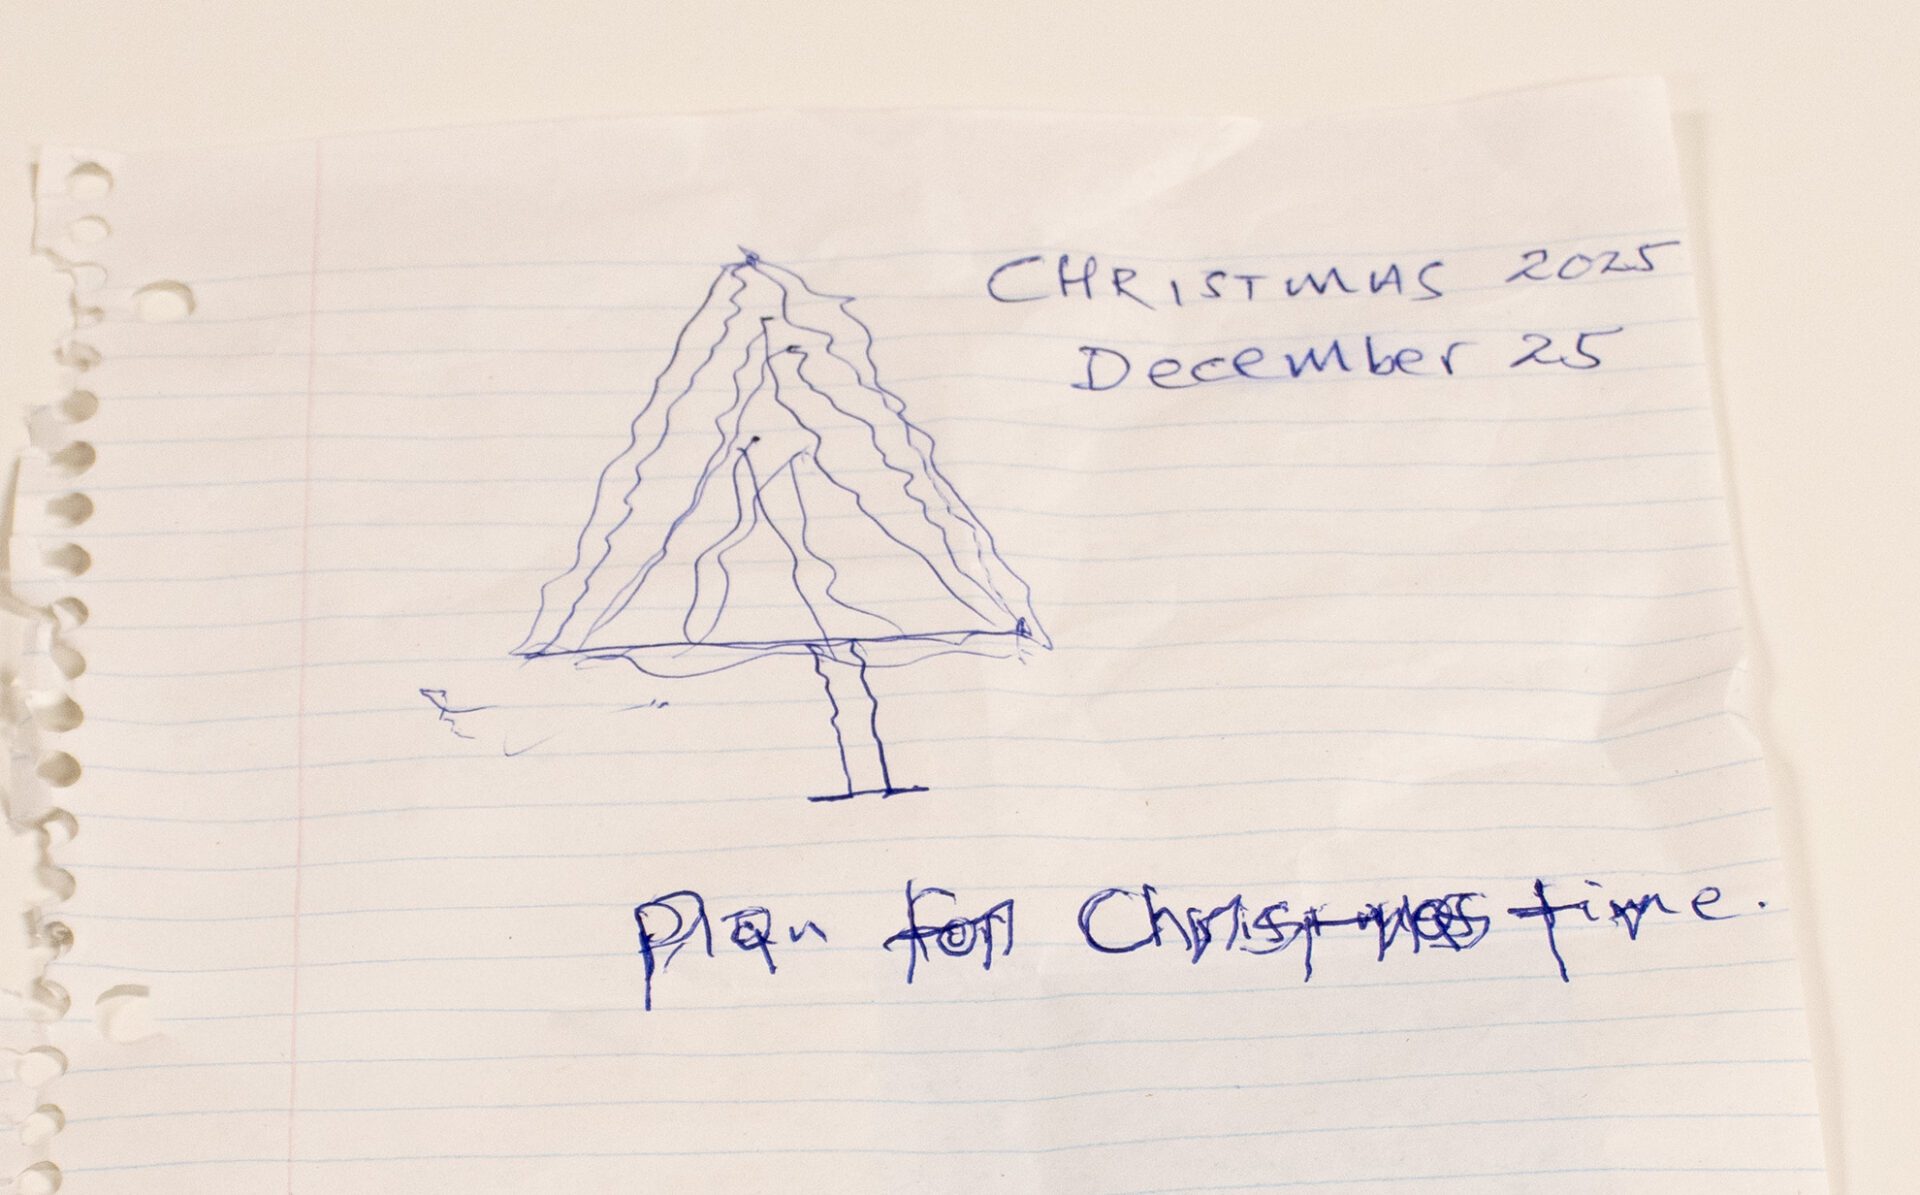 CHRISTMAS 2025
December 25
Plan for Christmas time.